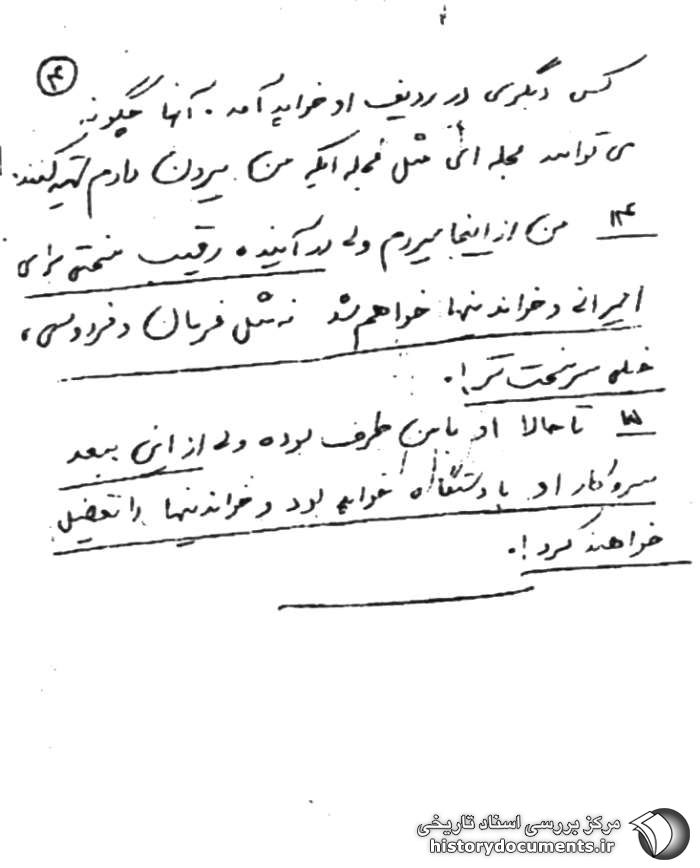 ۴
کس دیگری در ردیف او خواهد آمد. آنها چگونه
می توانند مجله ای مثل مجله ایکه من بیرون دادم تهیه کنند.
۱۴ من از اینجا میروم ولی در آینده رقیب سختی برای
امیرانی و خواندنیها خواهم شد نه مثل فرمان و فردوسی،
خیلی سرسخت تر!.
۱۵ تا حالا او با من طرف بوده ولی از این ببعد
سروکار او با دستگاه خواهد بود و خواندنیها را تعطیل
خواهند کرد!.
مرکز بررسی اسناد تاریخی
historydocuments.ir